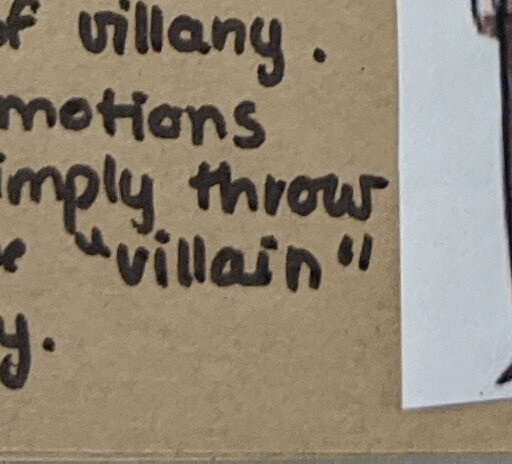 of villany.
motions
imply throw
"villain"
y.